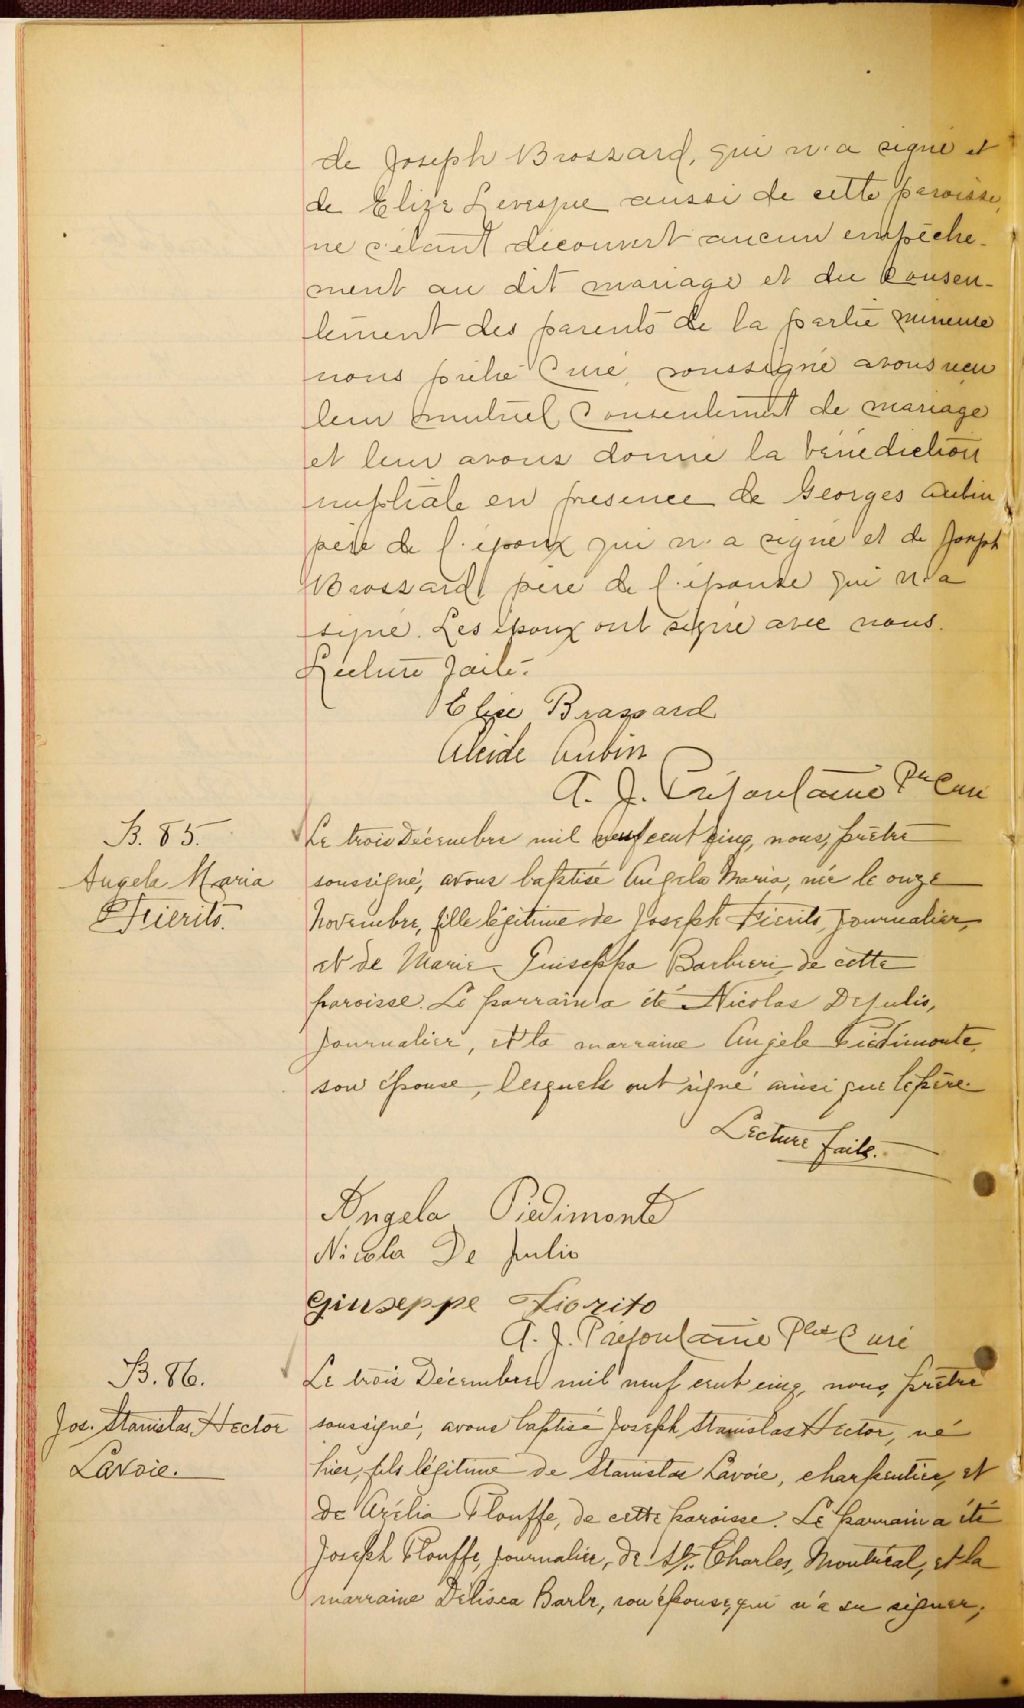 de Joseph Brossard, qui n'a signé et
de Elize Levesque aussi de cette paroisse,
ne s'étant découvert aucun empêche-
ment au dit mariage et du consen-
tement des parents de la partie mineure
nous prêtre Curé, soussigné avons reçu
leur mutuel Consentement de mariage
et leur avons donné la bénédiction
nuptiale en présence de Georges Aubin
père de l'époux qui n'a signé et de Joseph
Brossard, père de l'épouse qui n'a
signé. Les époux ont signé avec nous.
Lecture faite.
Elise Brassard
Alcide Aubin
A. J. Préfontaine Ptre Curé
B. 85.
Angela Maria
Fierito.
Le trois Décembre mil neuf cent cinq, nous, prêtre
soussigné, avons baptisé Angéla Maria, née le onze
Novembre, fille légitime de Joseph Fierito, journalier,
et de Marie Guiseppa Barbieri, de cette
paroisse. Le parrain a été Nicolas Dejulis,
journalier, et la marraine Angele Piedimonte,
son épouse, lesquels ont signé ainsi que le père.
Lecture faite.
Angela Piedimonte
Nicola De Julio
Giuseppe Fiorito
A. J. Préfontaine Ptre Curé
B. 86.
Jos. Stanislas Hector
Lavoie.
Le trois Décembre mil neuf cent cinq, nous, prêtre
soussigné, avons baptisé Joseph Stanislas Hector, né
hier, fils légitime de Stanislas Lavoie, charpentier, et
de Azélia Plouffe, de cette paroisse. Le parrain a été
Joseph Plouffe, journalier, de St. Charles, Montréal, et la
marraine Délisca Barbe, son épouse, qui n'a su signer,